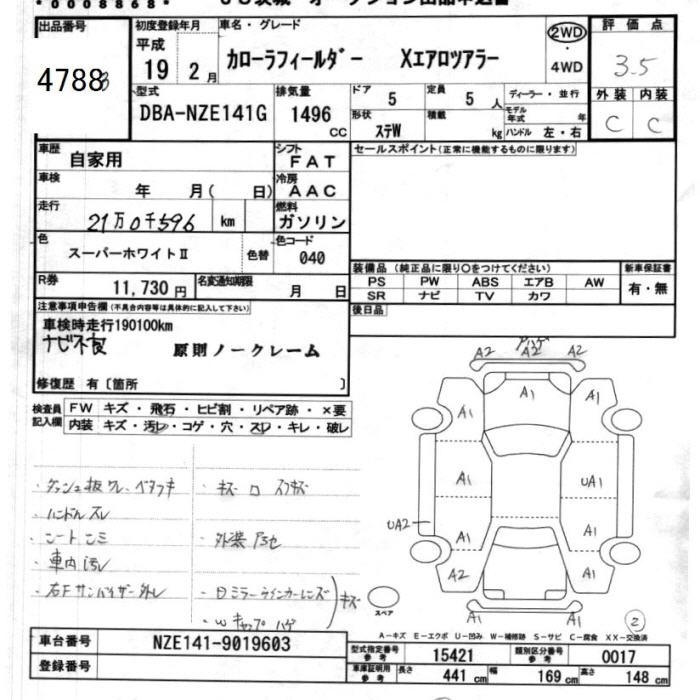 *0008868*
出品番号
4788
初度登録年月
平成
19 2月
車名・グレード
カローラフィールダー Xエアロツアラー
2WD
・
4WD
評価点
3.5
外装 内装
C C
型式
DBA-NZE141G
排気量
1496
CC
ドア 5
定員 5 人
ディーラー・並行
形状 ステW
積載 kg
モデル年式 年
ハンドル 左・右
車歴 自家用
シフト FAT
車検 年 月( 日)
冷房 AAC
走行 21万0千596 km
燃料 ガソリン
色 スーパーホワイトⅡ 色替
色コード 040
R券 11,730円
名変通知期限 月 日
セールスポイント(正常に機能するものに限ります)
装備品(純正品に限り○をつけてください) 新車保証書
PS PW ABS エアB AW 有・無
SR ナビ TV カワ
後日品
注意事項申告欄(不具合内容等は具体的に記入して下さい)
車検時走行190100km
ナビ不良 原則ノークレーム
修復歴 有〔箇所 〕
検査員記入欄
FW キズ・飛石・ヒビ割・リペア跡・×要
内装 キズ・汚レ・コゲ・穴・スレ・キレ・破レ
A2 A2 A2
A1 A1 A1
A1 UA1
UA2
A1 A1
A2 A1 A1
A1
・ハンドルスレ
・車内汚レ
・右Fサンバイザー外レ
キズ
スペア
2
A-キズ E-エクボ U-凹み W-補修跡 S-サビ C-腐食 XX-交換済
車台番号 NZE141-9019603
登録番号
型式指定番号 参考 15421
類別区分番号 参考 0017
車庫証明用 参考 長さ 441 cm 幅 169 cm 高さ 148 cm